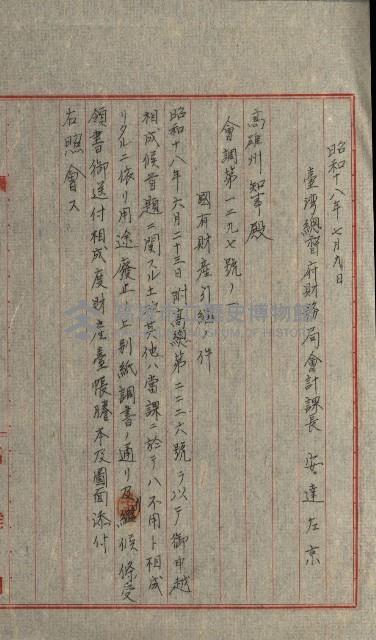 昭和十八年七月九日
臺灣總督府財務局會計課長 安達左京
高雄州知事殿
會調第一二九七號ノ一
國有財産引繼ノ件
昭和十八年六月二十三日附高總第二二二六號ヲ以テ御申越
相成候首題ニ関スル土地其他ハ當課ニ於テハ不用ト相成
リタルニ依リ用途廢止ノ上別紙調書ノ通リ及引繼候條受
領書御送付相成度財産臺帳謄本及圖面添付
右照會ス
高雄市立歷史博物館